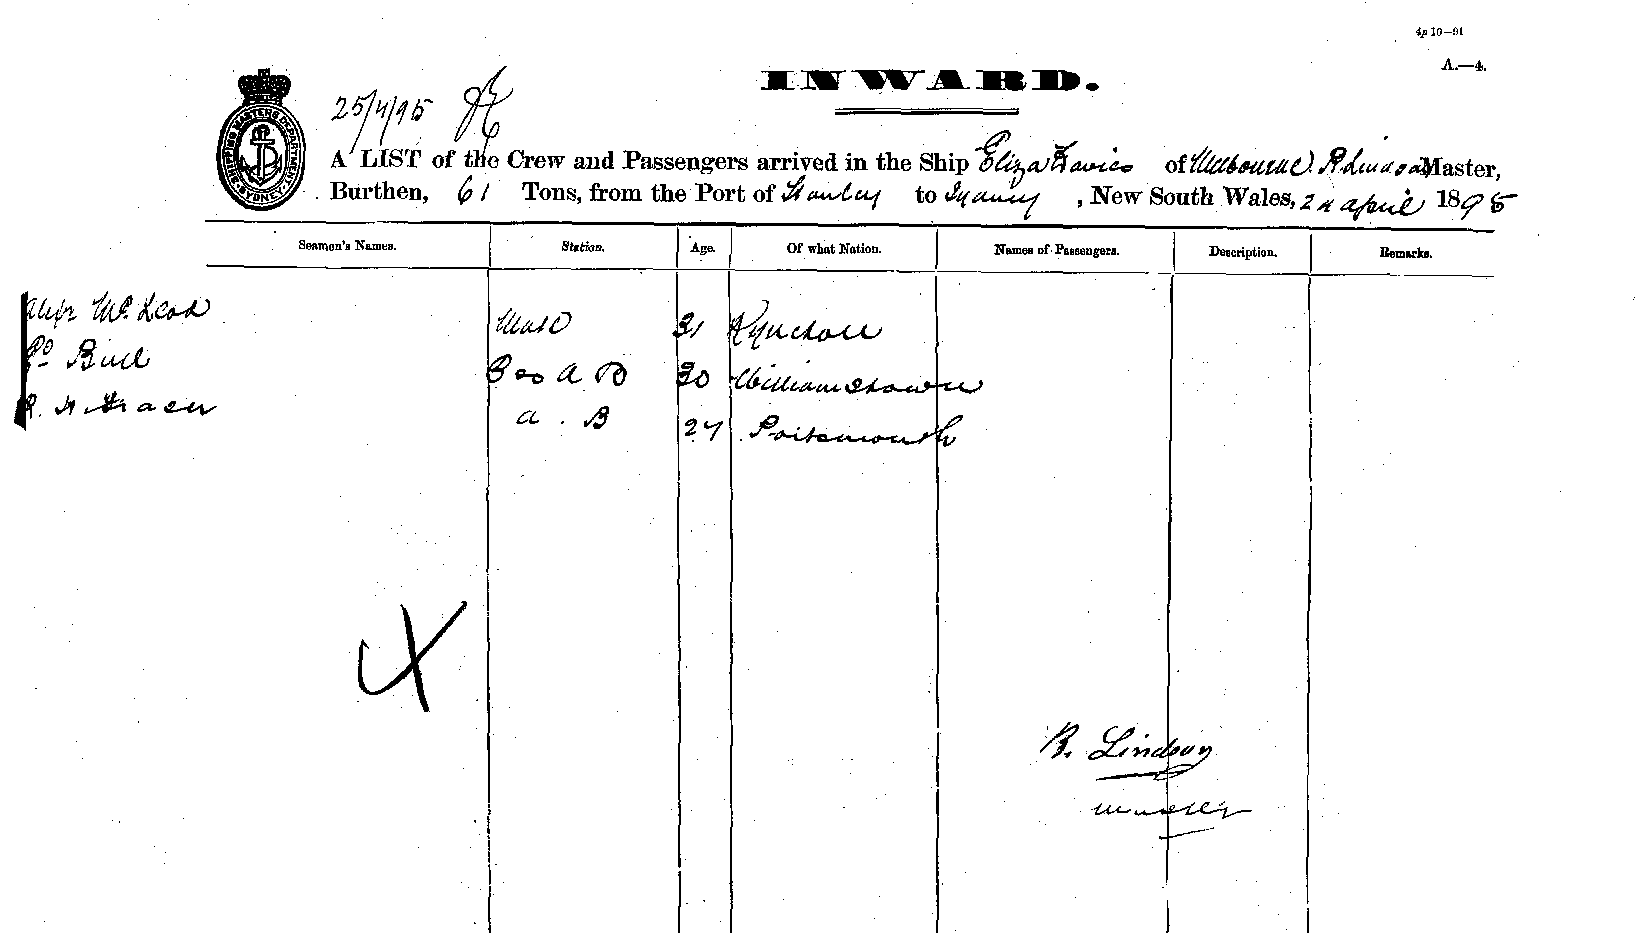 4p 10—91
A.—4.
INWARD.
25/4/95
SHIPPING MASTERS DEPARTMENT SYDNEY
A LIST of the Crew and Passengers arrived in the Ship Eliza Davies of Melbourne R Lindsay Master,
Burthen, 61 Tons, from the Port of Stanley to Sydney, New South Wales, 24 April 1895
Seamen's Names. Station. Age. Of what Nation. Names of Passengers. Description. Remarks.
McLeod Mate 31 Kyneton
Bull A B 30 Williamstown
A. B 27 Portsmouth
R. Lindsay
Master